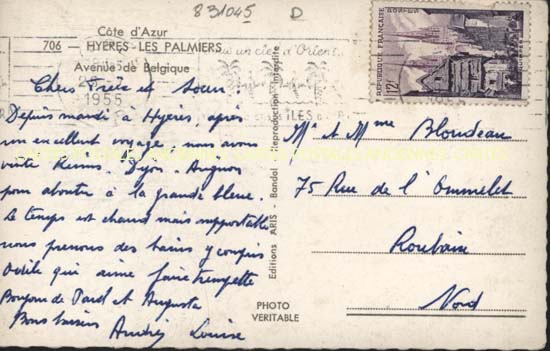 831045 D
Côte d'Azur
706 - HYÈRES-LES PALMIERS
Avenue de Belgique
1955
Chers Frère et Soeur.
Depuis mardi à Hyères, après
un excellent voyage, nous avons
visité Reims. Dijon. Avignon
pour aboutir à la grande bleue.
Le temps est chaud mais supportable
nous prenons des bains y compris
Odile qui aime faire trempette
Bonjour de Paul et Augusta
Bons baisers Andrée Louise
Editions ARIS - Bandol Reproduction Interdite
PHOTO
VERITABLE
un ciel d'Orient
ILES
REPUBLIQUE FRANÇAISE
POSTES
12F
Mr et Mme Blondeau
75 Rue de l'Ommelet
Roubaix
Nord